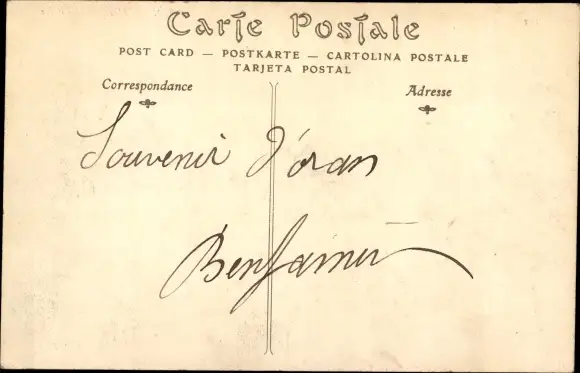 Carte Postale
POST CARD — POSTKARTE — CARTOLINA POSTALE
TARJETA POSTAL
Correspondance
Adresse
Souvenir d'oran
Benjamin